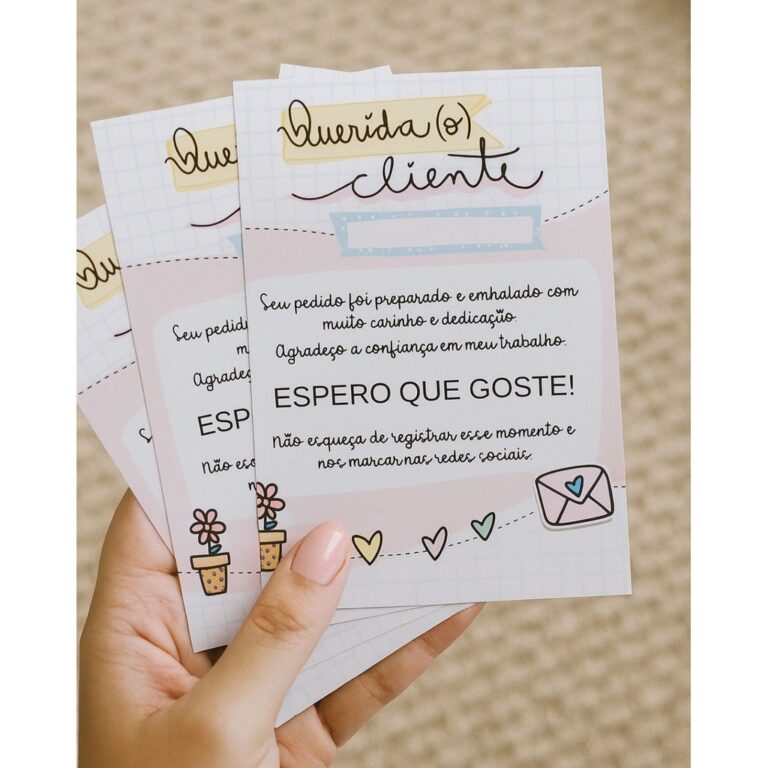 Querida(o)
cliente
Seu pedido foi preparado e emhalado com
muito carinho e dedicação.
Agradeço a confiança em meu trabalho.
ESPERO QUE GOSTE!
Não esqueça de registrar esse momento e
nos marcar nas redes sociais.
Que
Seu pedid
m
Agradeç
ESP
Não esq
Qu
S